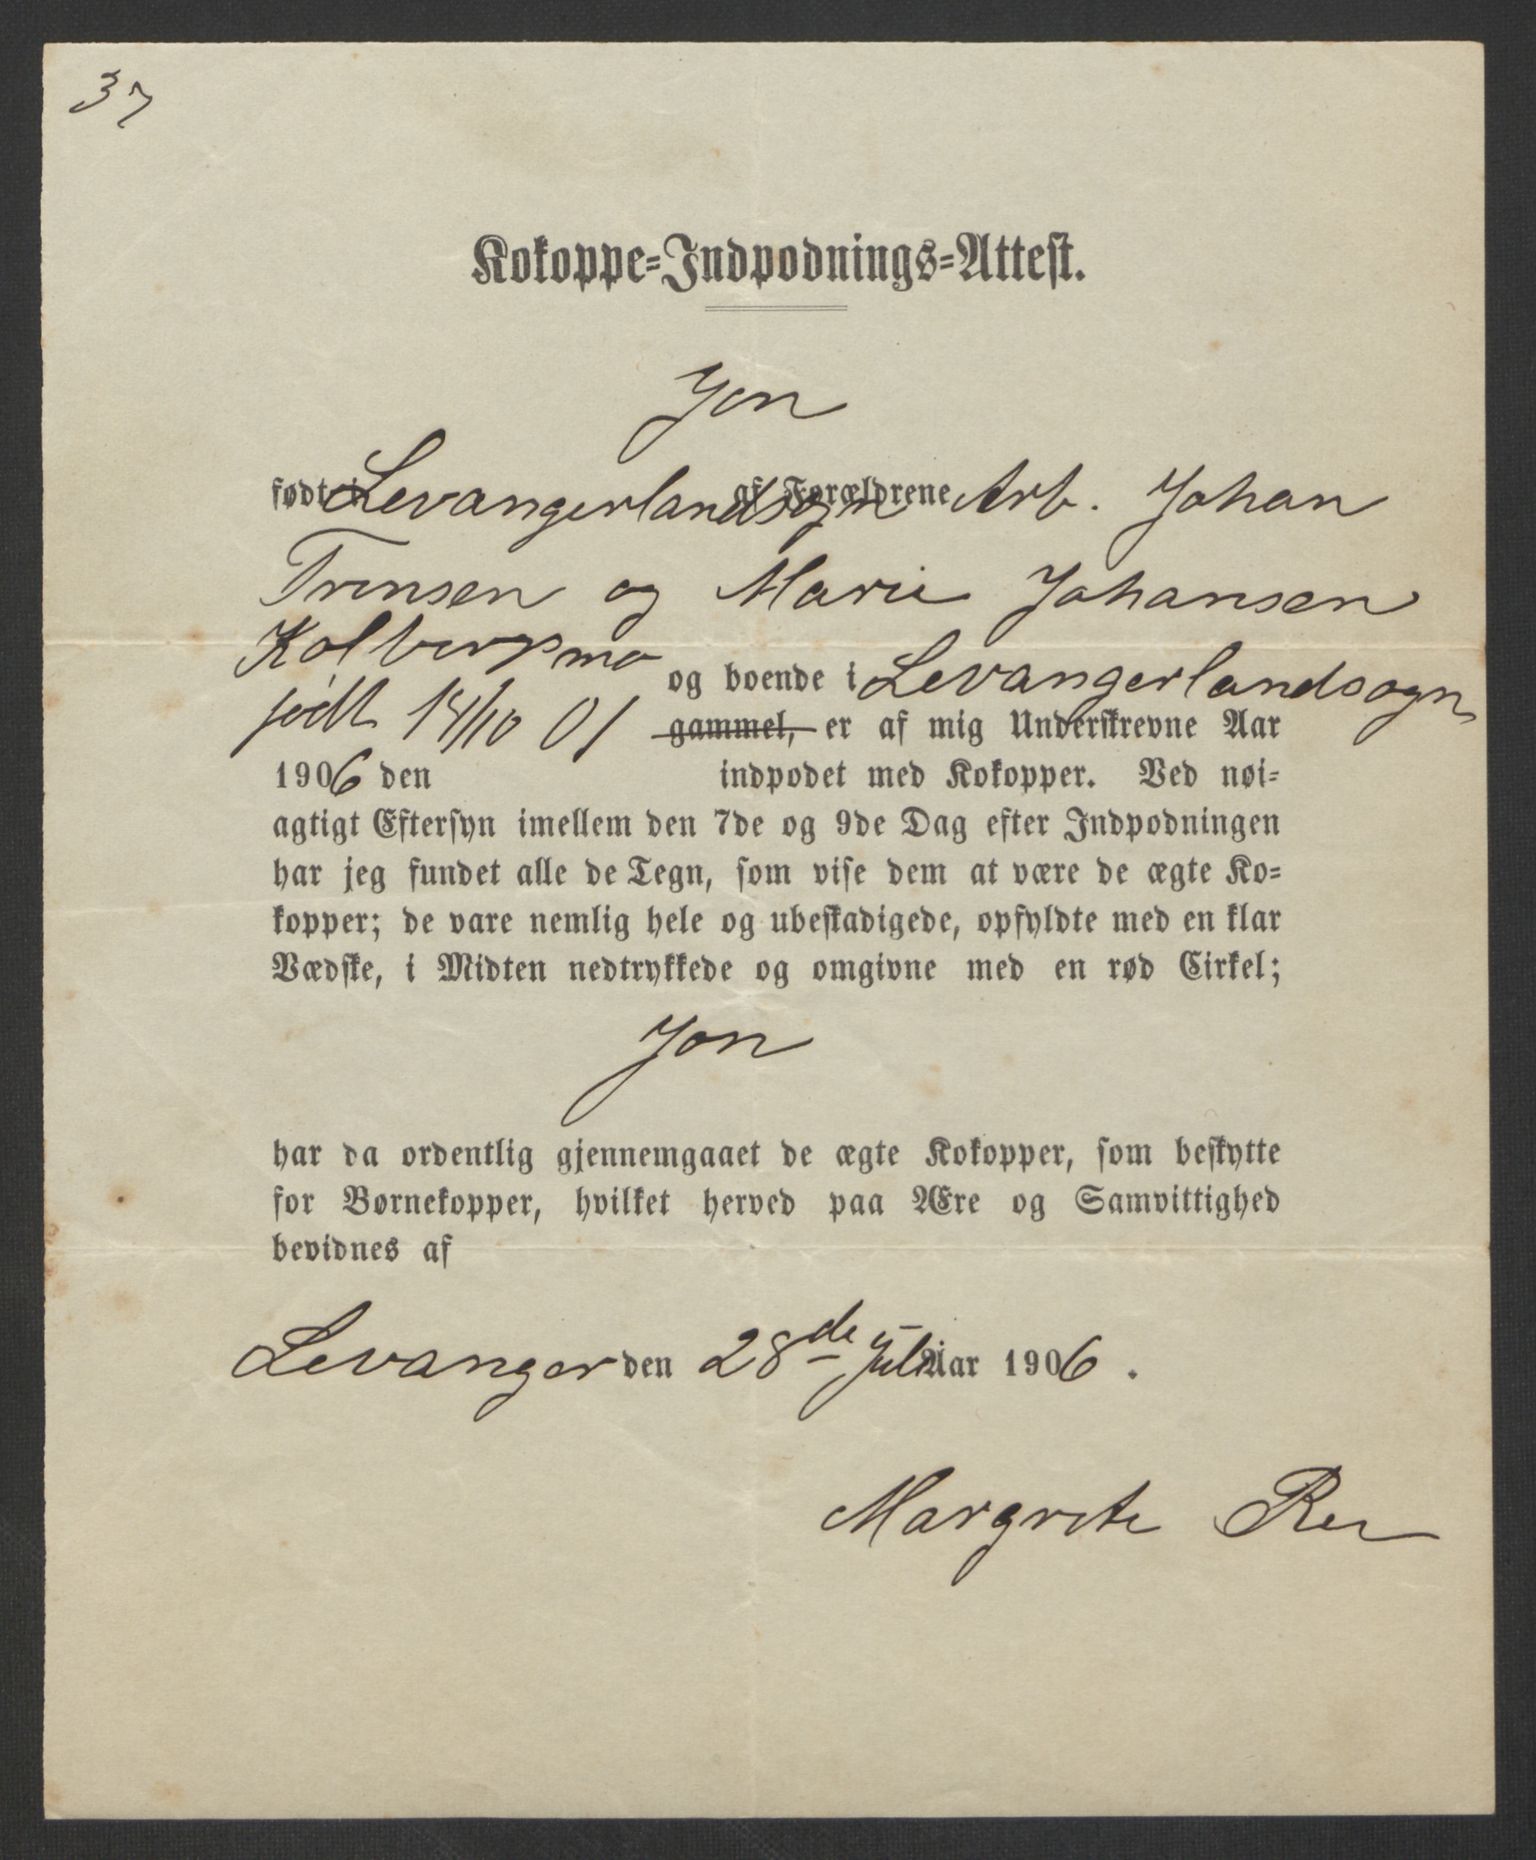 37
Kokoppe-Indpodnings-Attest.
Jon
født i Levangerlandsogn af Forældrene Arb. Johan
Trensen og Marie Johansen
Kolbergsmo og boende i Levangerlandsogn
født 14/10 01 gammel, er af mig Underskrevne Aar
1906 den indpodet med Kokopper. Ved nøi-
agtigt Eftersyn imellem den 7de og 9de Dag efter Indpodningen
har jeg fundet alle de Tegn, som vise dem at være de ægte Ko-
kopper; de vare nemlig hele og ubeskadigede, opfyldte med en klar
Vædske, i Midten nedtrykkede og omgivne med en rød Cirkel;
Jon
har da ordentlig gjennemgaaet de ægte Kokopper, som beskytte
for Børnekopper, hvilket herved paa Ære og Samvittighed
bevidnes af
Levanger den 28de Juli Aar 1906.
Margrete